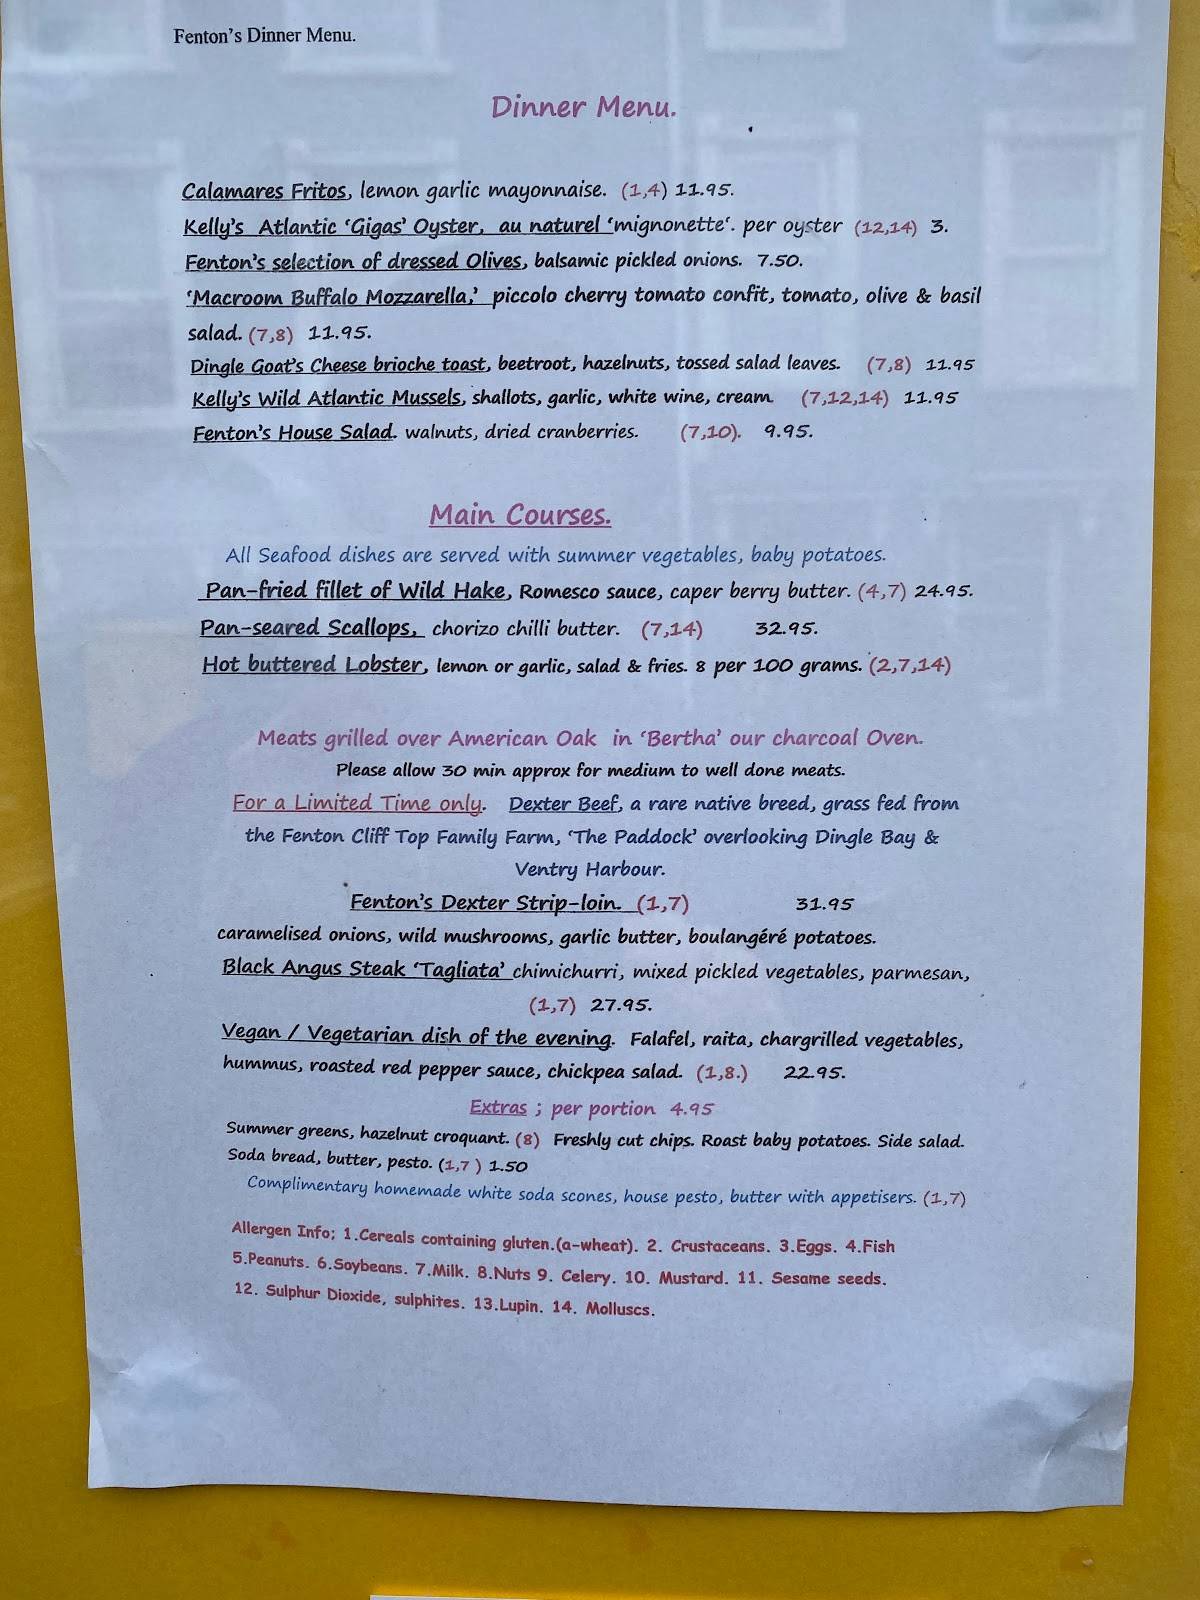 Fenton's Dinner Menu.
Dinner Menu.
Calamares Fritos, lemon garlic mayonnaise. (1,4) 11.95.
Kelly's Atlantic 'Gigas' Oyster, au naturel 'mignonette'. per oyster (12,14) 3.
Fenton's selection of dressed Olives, balsamic pickled onions. 7.50.
'Macroom Buffalo Mozzarella,' piccolo cherry tomato confit, tomato, olive & basil
salad. (7,8) 11.95.
Dingle Goat's Cheese brioche toast, beetroot, hazelnuts, tossed salad leaves. (7,8) 11.95
Kelly's Wild Atlantic Mussels, shallots, garlic, white wine, cream (7,12,14) 11.95
Fenton's House Salad. walnuts, dried cranberries. (7,10). 9.95.
Main Courses.
All Seafood dishes are served with summer vegetables, baby potatoes.
Pan-fried fillet of Wild Hake, Romesco sauce, caper berry butter. (4,7) 24.95.
Pan-seared Scallops, chorizo chilli butter. (7,14) 32.95.
Hot buttered Lobster, lemon or garlic, salad & fries. 8 per 100 grams. (2,7,14)
Meats grilled over American Oak in 'Bertha' our charcoal Oven.
Please allow 30 min approx for medium to well done meats.
For a Limited Time only. Dexter Beef, a rare native breed, grass fed from
the Fenton Cliff Top Family Farm, 'The Paddock' overlooking Dingle Bay &
Ventry Harbour.
Fenton's Dexter Strip-loin. (1,7) 31.95
caramelised onions, wild mushrooms, garlic butter, boulangéré potatoes.
Black Angus Steak 'Tagliata' chimichurri, mixed pickled vegetables, parmesan,
(1,7) 27.95.
Vegan / Vegetarian dish of the evening. Falafel, raita, chargrilled vegetables,
hummus, roasted red pepper sauce, chickpea salad. (1,8.) 22.95.
Extras ; per portion 4.95
Summer greens, hazelnut croquant. (8) Freshly cut chips. Roast baby potatoes. Side salad.
Soda bread, butter, pesto. (1,7 ) 1.50
Complimentary homemade white soda scones, house pesto, butter with appetisers. (1,7)
Allergen Info; 1.Cereals containing gluten.(a-wheat). 2. Crustaceans. 3.Eggs. 4.Fish
5.Peanuts. 6.Soybeans. 7.Milk. 8.Nuts 9. Celery. 10. Mustard. 11. Sesame seeds.
12. Sulphur Dioxide, sulphites. 13.Lupin. 14. Molluscs.